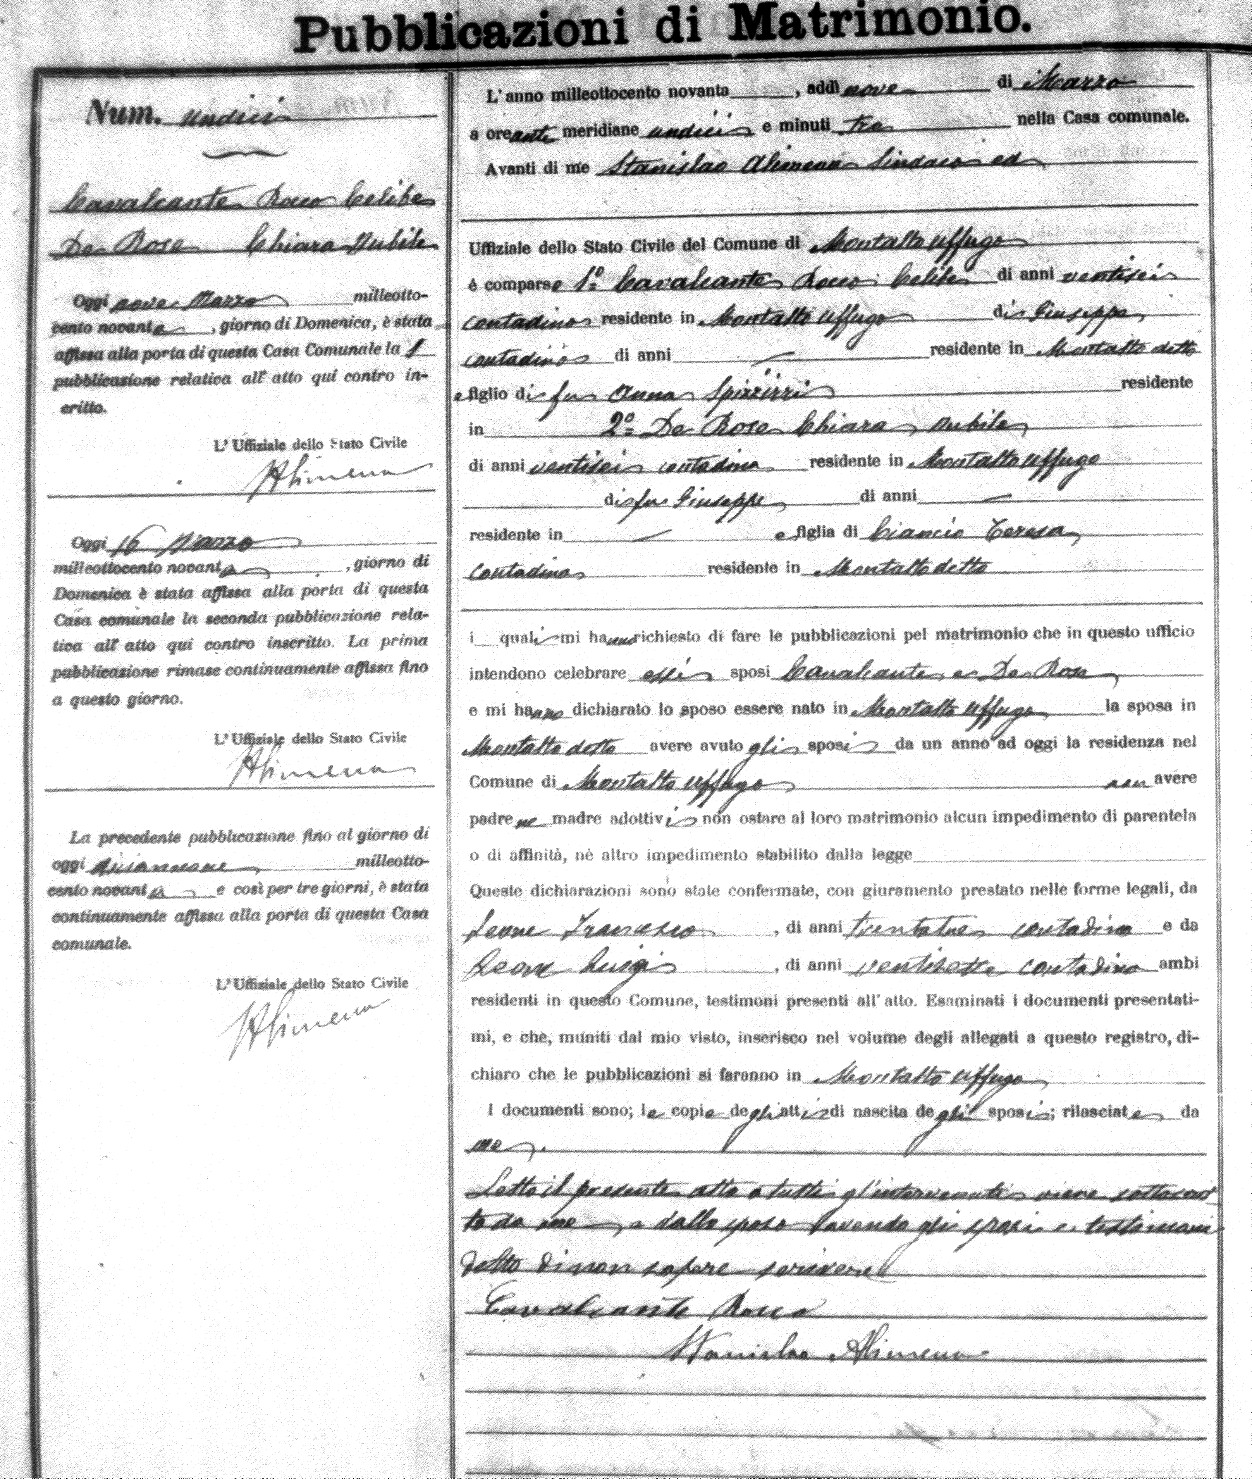 Pubblicazioni di Matrimonio.
Num. undici
Cavalcante Rocco Celibe
De Rose Chiara Nubile
Oggi nove Marzo milleotto-
cento novanta, giorno di Domenica, è stata
affissa alla porta di questa Casa Comunale la 1
pubblicazione relativa all' atto qui contro in-
critto.
L' Uffiziale dello Stato Civile
SAlimena
Oggi 16 Marzo
milleottocento novanta, giorno di
Domenica è stata affissa alla porta di questa
Casa comunale la seconda pubblicazione rela-
tiva all' atto qui contro inscritto. La prima
pubblicazione rimase continuamente affissa fino
a questo giorno.
L' Uffiziale dello Stato Civile
SAlimena
La precedente pubblicazione fino al giorno di
oggi diciannove milleotto-
cento novanta e così per tre giorni, è stata
continuamente affissa alla porta di questa Casa
comunale.
L' Uffiziale dello Stato Civile
SAlimena
L' anno milleottocento novanta, addì nove di Marzo
a ore anti meridiane undici e minuti tre nella Casa comunale.
Avanti di me Stanislao Alimena Sindaco ed
Uffiziale dello Stato Civile del Comune di Montalto Uffugo
è comparse 1º Cavalcante Rocco Celibe di anni ventisei
contadino residente in Montalto Uffugo di Giuseppe
contadino di anni residente in Montalto detto
e figlio di fu Anna Spizzirri residente
in 2º De Rose Chiara nubile
di anni ventisei contadina residente in Montalto Uffugo
di fu Giuseppe di anni
residente in e figlia di Ciancio Teresa
contadina residente in Montalto detto
i quali mi hanno richiesto di fare le pubblicazioni pel matrimonio che in questo ufficio
intendono celebrare essi sposi Cavalcante e De Rose
e mi hanno dichiarato lo sposo essere nato in Montalto Uffugo la sposa in
Montalto detto avere avuto gli sposi da un anno ad oggi la residenza nel
Comune di Montalto Uffugo non avere
padre ne madre adottivi non ostare al loro matrimonio alcun impedimento di parentela
o di affinità, nè altro impedimento stabilito dalla legge
Queste dichiarazioni sono state confermate, con giuramento prestato nelle forme legali, da
Leone Francesco, di anni trentatre contadino e da
Leone Luigi, di anni ventisette contadino ambi
residenti in questo Comune, testimoni presenti all' atto. Esaminati i documenti presentati-
mi, e che, muniti dal mio visto, inserisco nel volume degli allegati a questo registro, di-
chiaro che le pubblicazioni si faranno in Montalto Uffugo
I documenti sono; le copie degli atti di nascita degli sposi; rilasciate da
me.
Letto il presente atto a tutti gl'intervenuti viene sottoscrit
to da me e dallo sposo avendo gli sposi e testimoni
detto di non sapere scrivere
Cavalcante Rocco
Stanislao Alimena